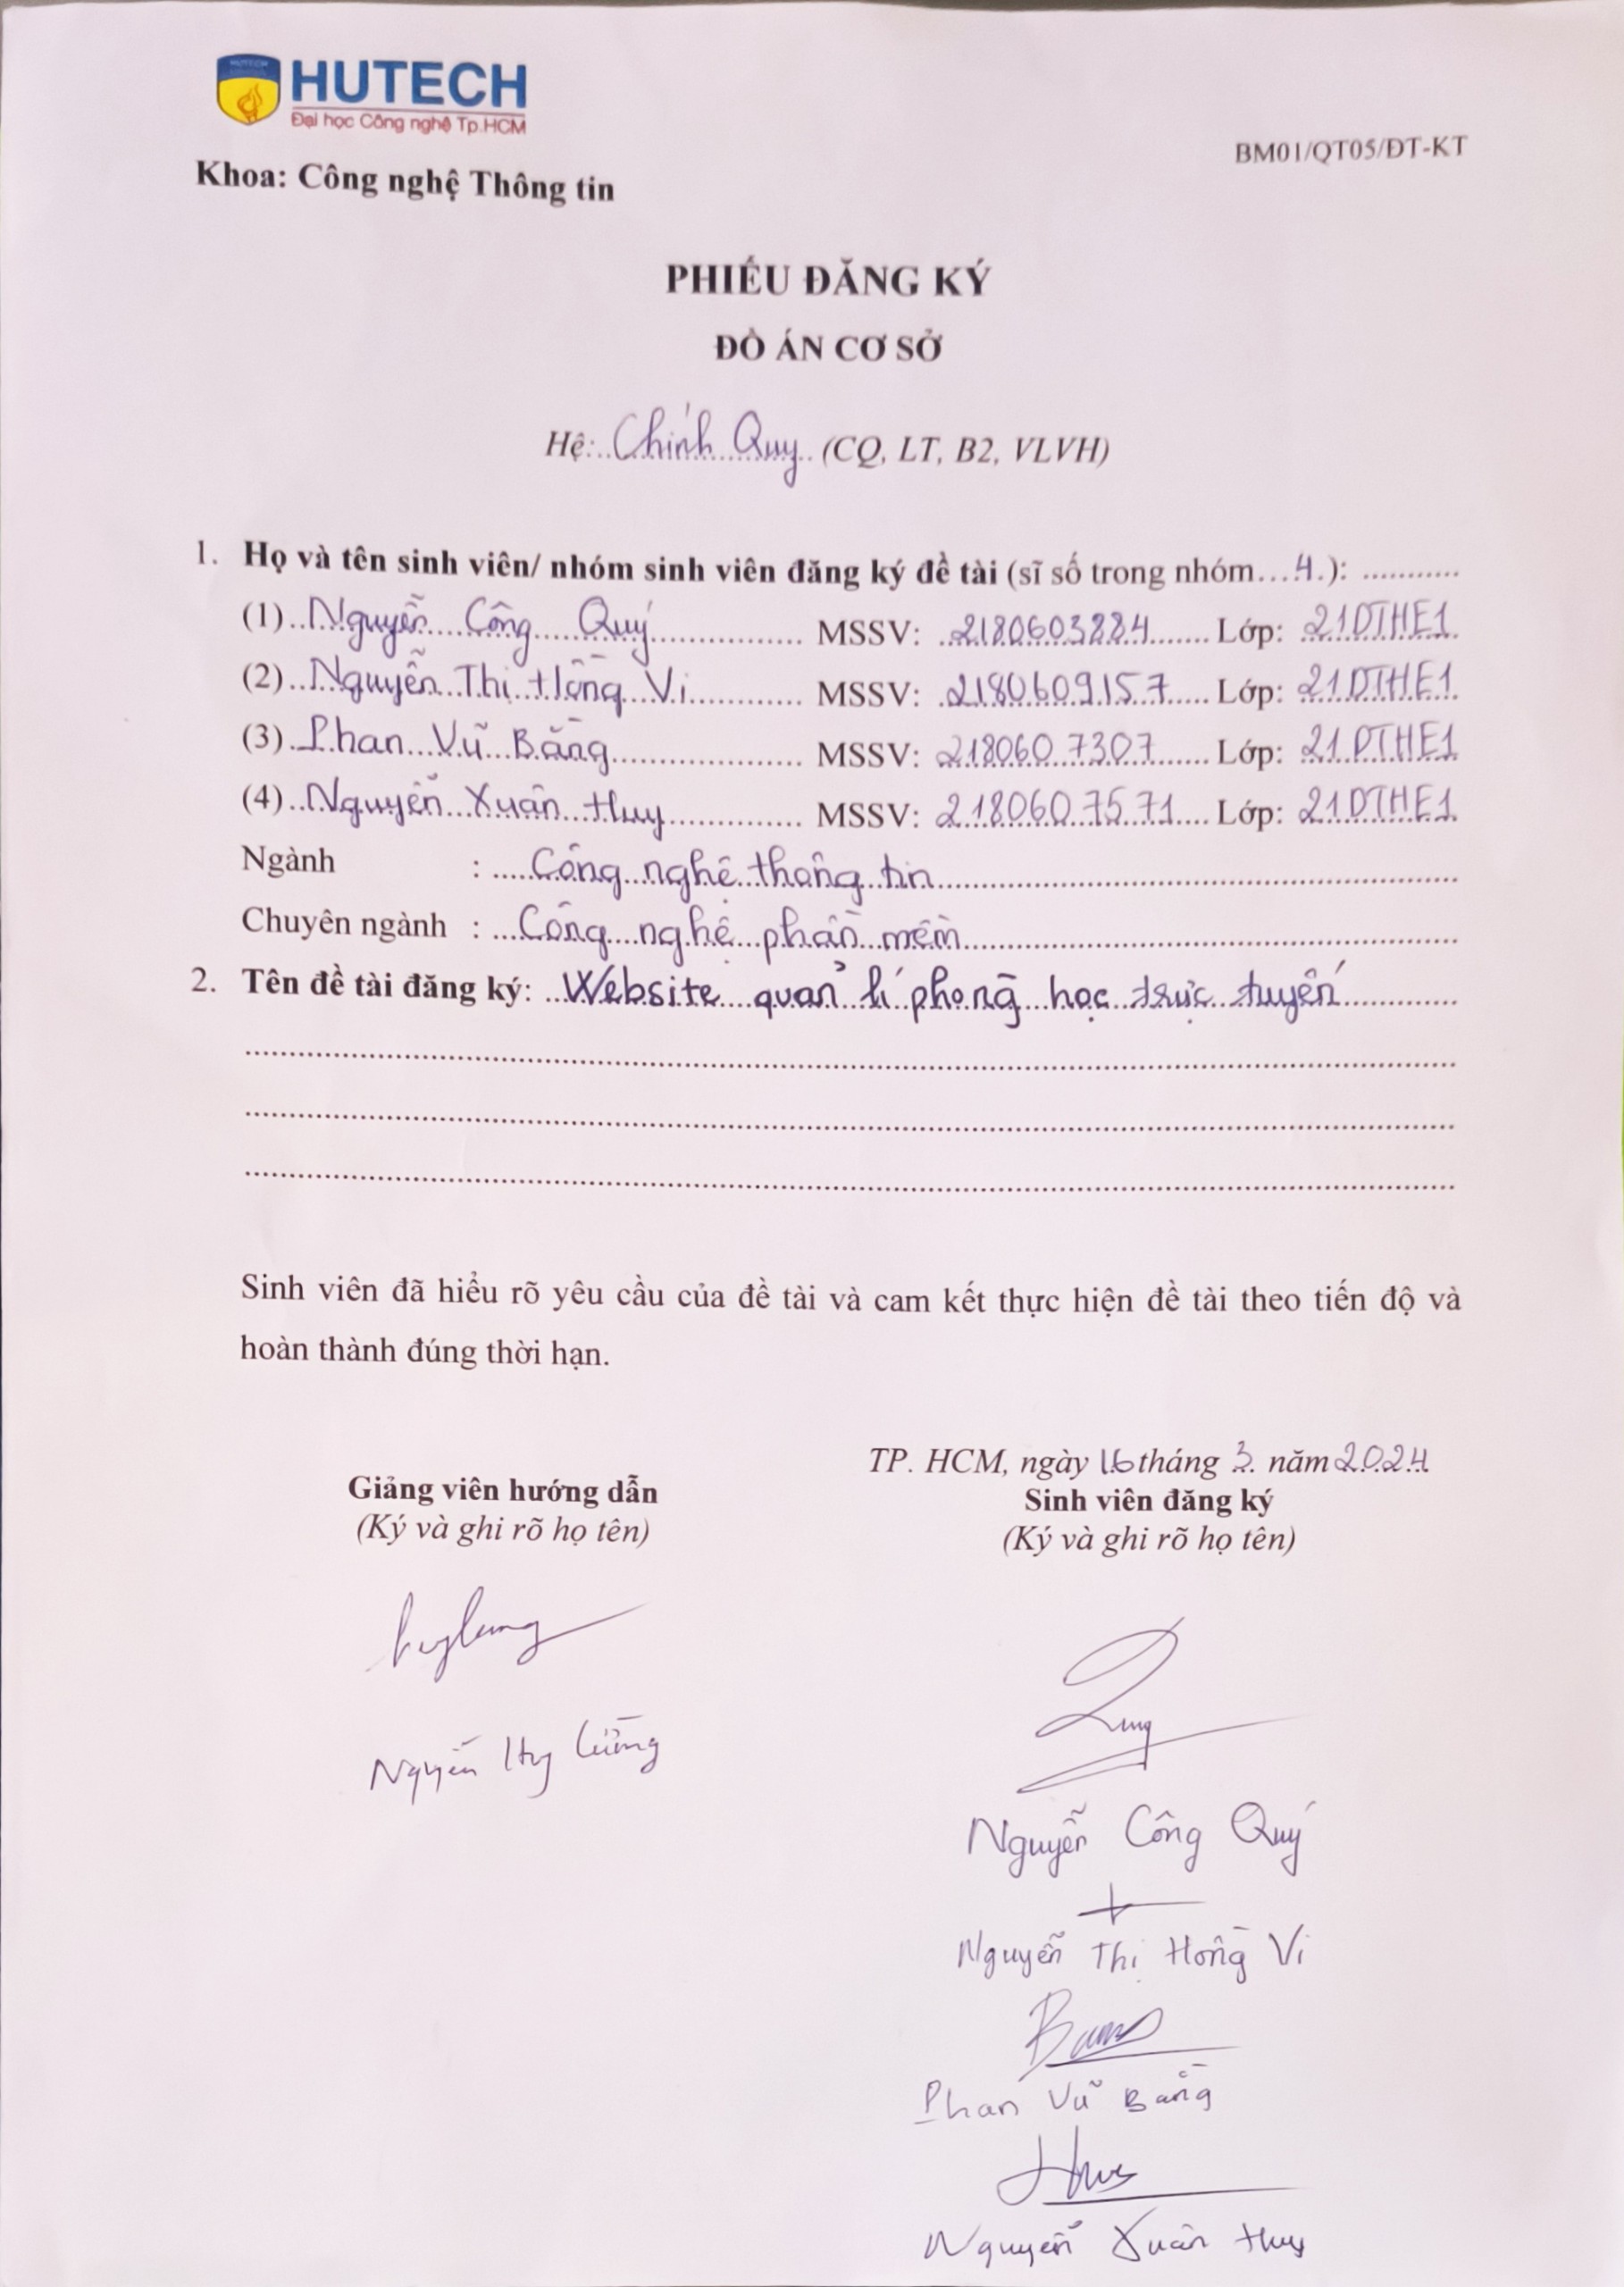 HUTECH
HUTECH
Đại học Công nghệ Tp.HCM
BM01/QT05/ĐT-KT
Khoa: Công nghệ Thông tin
PHIẾU ĐĂNG KÝ
ĐỒ ÁN CƠ SỞ
Hệ: Chính Quy (CQ, LT, B2, VLVH)
1. Họ và tên sinh viên/ nhóm sinh viên đăng ký đề tài (sĩ số trong nhóm...4.): ...........
(1) Nguyễn Công Quý MSSV: 2180603884 Lớp: 21DTHE1
(2) Nguyễn Thị Hồng Vi MSSV: 2180609157 Lớp: 21DTHE1
(3) Phan Vũ Bằng MSSV: 2180607307 Lớp: 21DTHE1
(4) Nguyễn Xuân Huy MSSV: 2180607571 Lớp: 21DTHE1
Ngành : Công nghệ thông tin
Chuyên ngành : Công nghệ phần mềm
2. Tên đề tài đăng ký: Website quản lí phòng học trực tuyến
Sinh viên đã hiểu rõ yêu cầu của đề tài và cam kết thực hiện đề tài theo tiến độ và
hoàn thành đúng thời hạn.
TP. HCM, ngày 16 tháng 3 năm 2024
Giảng viên hướng dẫn
(Ký và ghi rõ họ tên)
Nguyễn Huy Cường
Sinh viên đăng ký
(Ký và ghi rõ họ tên)
Nguyễn Công Quý
Nguyễn Thị Hồng Vi
Phan Vũ Bằng
Nguyễn Xuân Huy